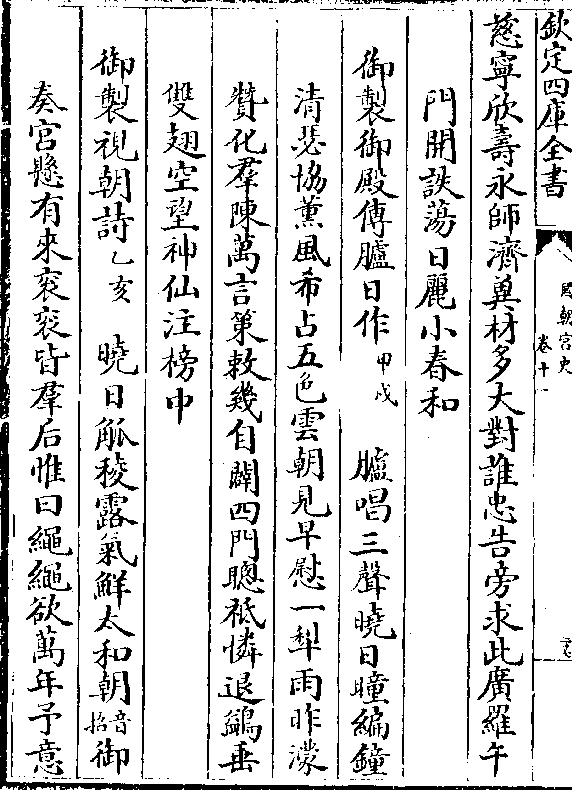 欽定四庫全書
國朝宮史
卷十一
慈寧欣壽永師濟奠材多大對誰忠告旁求此廣羅午
門開詄蕩日麗小春和
御製御殿傳臚日作甲戌 臚唱三聲曉日曈編鐘
清瑟協薰風希占五色雲朝見早慰一犁雨昨濛
贊化羣陳萬言策敕幾自闢四門聰祗憐退鷁垂
雙翅空望神仙注榜中
御製視朝詩乙亥 曉日觚稜露氣鮮太和朝音招御
奏宮懸有來袞袞皆羣后惟曰繩繩欲萬年予意